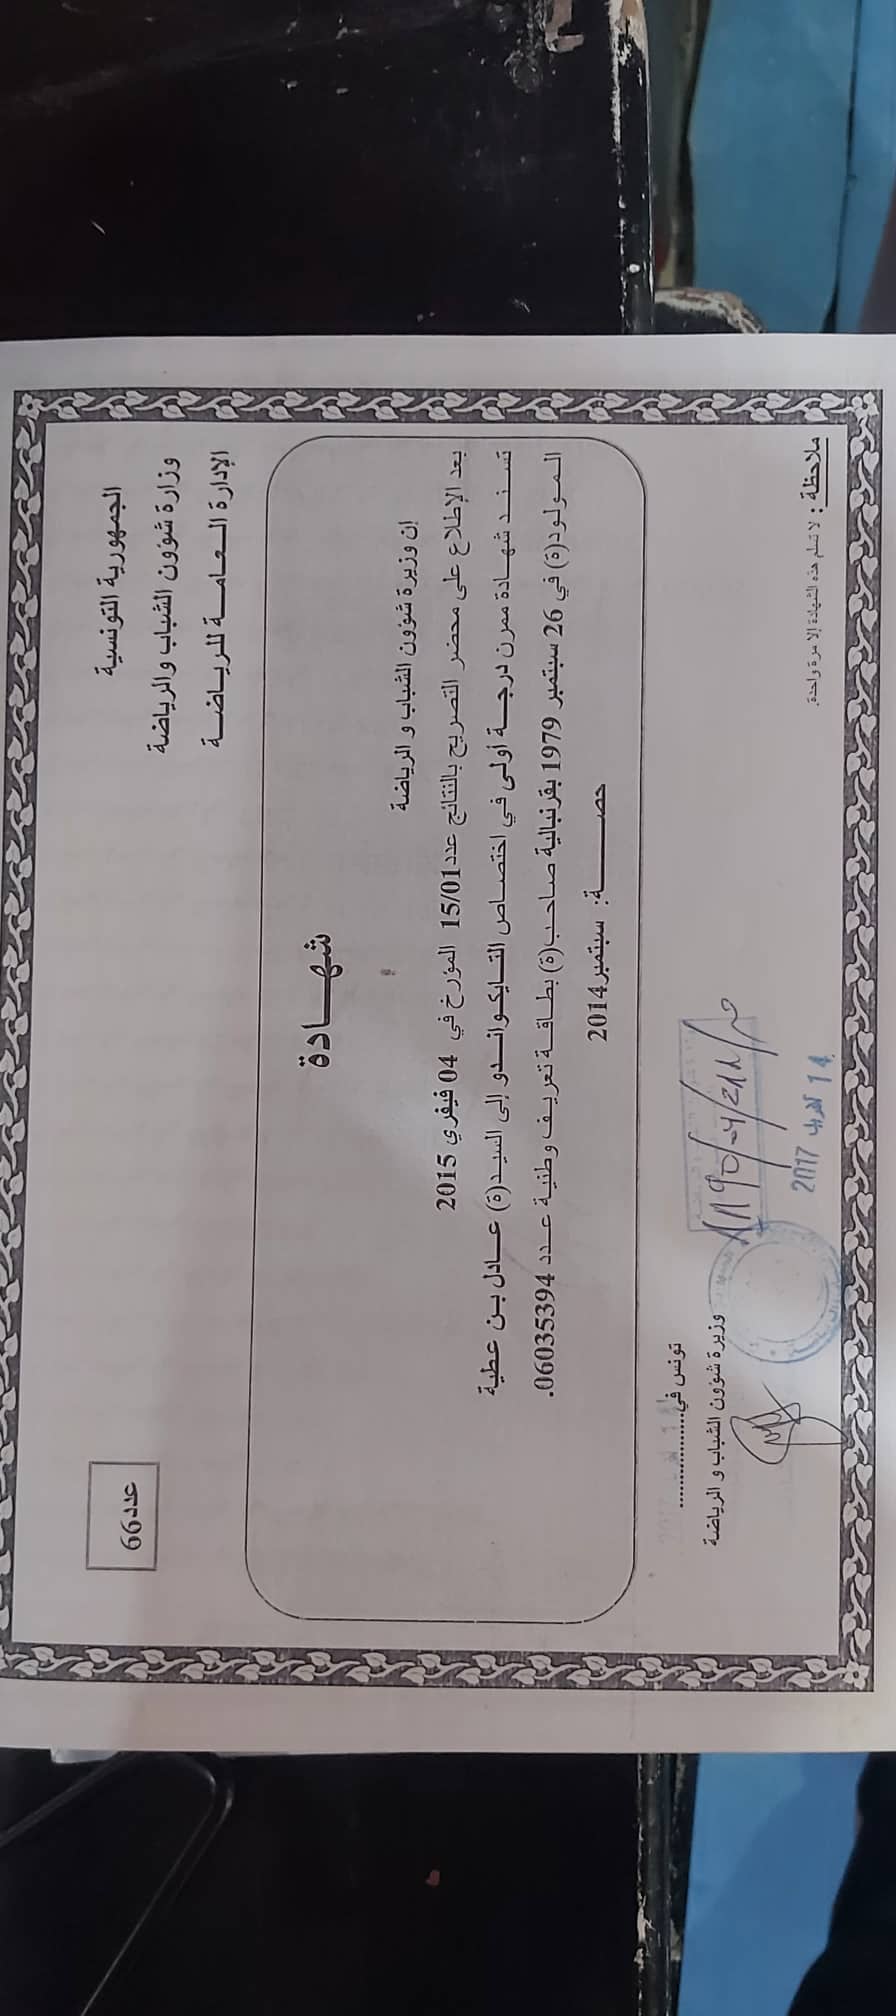 الجمهورية التونسية
وزارة شؤون الشباب والرياضة
الإدارة العامة للرياضة
عدد66
شهادة
إن وزيرة شؤون الشباب و الرياضة
بعد الإطلاع على محضر التصريح بالنتائج عدد15/01 المؤرخ في 04 فيفري 2015
تسند شهادة ممرن درجة أولى في اختصاص التايكواندو إلى السيد(ة) عادل بن عطية
المولود(ة) في 26 سبتمبر 1979 بقرنبالية صاحب(ة) بطاقة تعريف وطنية عدد 06035394.
حصة: سبتمبر2014
تونس في
وزيرة شؤون الشباب و الرياضة
14 أفريل 2017
ملاحظة : لا تسلم هذه الشهادة إلا مرة واحدة.